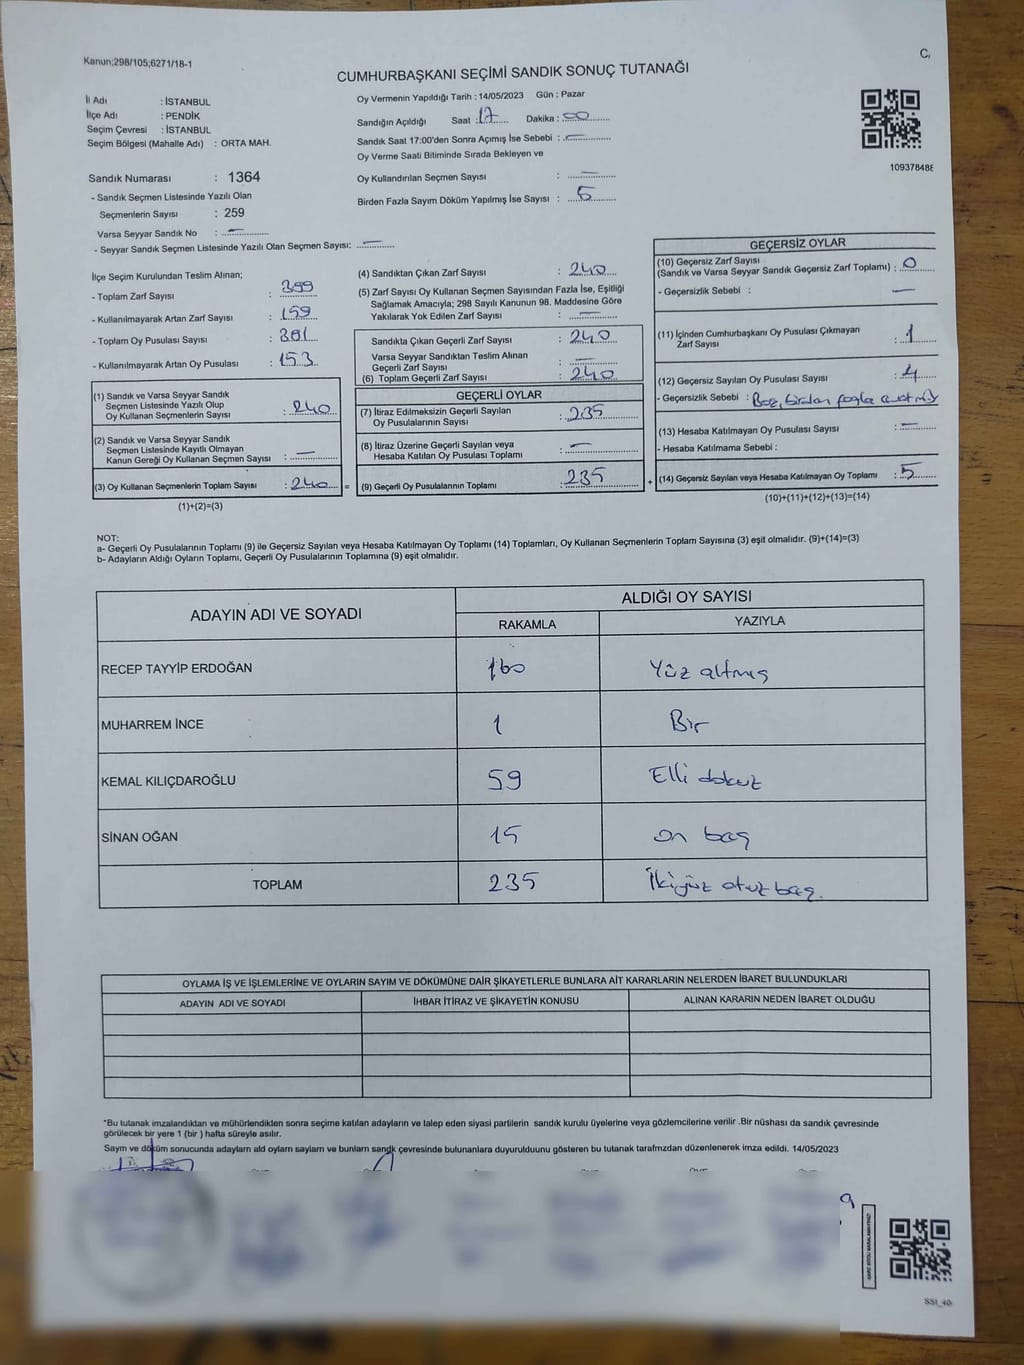 Kanun;298/105;6271/18-1
C,
CUMHURBAŞKANI SEÇİMİ SANDIK SONUÇ TUTANAĞI
İl Adı : İSTANBUL
İlçe Adı : PENDİK
Seçim Çevresi : İSTANBUL
Seçim Bölgesi (Mahalle Adı) : ORTA MAH.
Oy Vermenin Yapıldığı Tarih : 14/05/2023 Gün : Pazar
Sandığın Açıldığı Saat : 17 Dakika : 00
Sandık Saat 17:00'den Sonra Açımış İse Sebebi : —
Oy Verme Saati Bitiminde Sırada Bekleyen ve
Oy Kullandırılan Seçmen Sayısı : —
Birden Fazla Sayım Döküm Yapılmış İse Sayısı : 5
10937848
Sandık Numarası : 1364
- Sandık Seçmen Listesinde Yazılı Olan
Seçmenlerin Sayısı : 259
Varsa Seyyar Sandık No : —
- Seyyar Sandık Seçmen Listesinde Yazılı Olan Seçmen Sayısı: —
İlçe Seçim Kurulundan Teslim Alınan;
- Toplam Zarf Sayısı : 399
- Kullanılmayarak Artan Zarf Sayısı : 159
- Toplam Oy Pusulası Sayısı :
- Kullanılmayarak Artan Oy Pusulası : 153
(1) Sandık ve Varsa Seyyar Sandık
Seçmen Listesinde Yazılı Olup
Oy Kullanan Seçmenlerin Sayısı : 240
(2) Sandık ve Varsa Seyyar Sandık
Seçmen Listesinde Kayıtlı Olmayan
Kanun Gereği Oy Kullanan Seçmen Sayısı : —
(3) Oy Kullanan Seçmenlerin Toplam Sayısı : 240 =
(1)+(2)=(3)
(4) Sandıktan Çıkan Zarf Sayısı : 240
(5) Zarf Sayısı Oy Kullanan Seçmen Sayısından Fazla İse, Eşitliği
Sağlamak Amacıyla; 298 Sayılı Kanunun 98. Maddesine Göre
Yakılarak Yok Edilen Zarf Sayısı : —
Sandıkta Çıkan Geçerli Zarf Sayısı : 240
Varsa Seyyar Sandıktan Teslim Alınan
Geçerli Zarf Sayısı : —
(6) Toplam Geçerli Zarf Sayısı : 240
GEÇERLİ OYLAR
(7) İtiraz Edilmeksizin Geçerli Sayılan
Oy Pusulalarının Sayısı : 235
(8) İtiraz Üzerine Geçerli Sayılan veya
Hesaba Katılan Oy Pusulası Toplamı : —
(9) Geçerli Oy Pusulalarının Toplamı : 235 +
GEÇERSİZ OYLAR
(10) Geçersiz Zarf Sayısı
(Sandık ve Varsa Seyyar Sandık Geçersiz Zarf Toplamı) : 0
- Geçersizlik Sebebi : —
(11) İçinden Cumhurbaşkanı Oy Pusulası Çıkmayan
Zarf Sayısı : 1
(12) Geçersiz Sayılan Oy Pusulası Sayısı : 4
- Geçersizlik Sebebi : Boş, birden fazla
(13) Hesaba Katılmayan Oy Pusulası Sayısı : —
- Hesaba Katılmama Sebebi :
(14) Geçersiz Sayılan veya Hesaba Katılmayan Oy Toplamı : 5
(10)+(11)+(12)+(13)=(14)
NOT:
a- Geçerli Oy Pusulalarının Toplamı (9) ile Geçersiz Sayılan veya Hesaba Katılmayan Oy Toplamı (14) Toplamları, Oy Kullanan Seçmenlerin Toplam Sayısına (3) eşit olmalıdır. (9)+(14)=(3)
b- Adayların Aldığı Oyların Toplamı, Geçerli Oy Pusulalarının Toplamına (9) eşit olmalıdır.
ADAYIN ADI VE SOYADI
ALDIĞI OY SAYISI
RAKAMLA YAZIYLA
RECEP TAYYİP ERDOĞAN 160 Yüz altmış
MUHARREM İNCE 1 Bir
KEMAL KILIÇDAROĞLU 59 Elli dokuz
SİNAN OĞAN 15 on beş
TOPLAM 235 İkiyüz otuz beş.
OYLAMA İŞ VE İŞLEMLERİNE VE OYLARIN SAYIM VE DÖKÜMÜNE DAİR ŞİKAYETLERLE BUNLARA AİT KARARLARIN NELERDEN İBARET BULUNDUKLARI
ADAYIN ADI VE SOYADI İHBAR İTİRAZ VE ŞİKAYETİN KONUSU ALINAN KARARIN NEDEN İBARET OLDUĞU
*Bu tutanak imzalandıktan ve mühürlendikten sonra seçime katılan adayların ve talep eden siyasi partilerin sandık kurulu üyelerine veya gözlemcilerine verilir .Bir nüshası da sandık çevresinde
görülecek bir yere 1 (bir ) hafta süreyle asılır.
Sayım ve döküm sonucunda adaylarn ald oylarn saylarn ve bunlarn sandk çevresinde bulunanlara duyurulduunu gösteren bu tutanak tarafmzdan düzenlenerek imza edildi. 14/05/2023
SSI_40